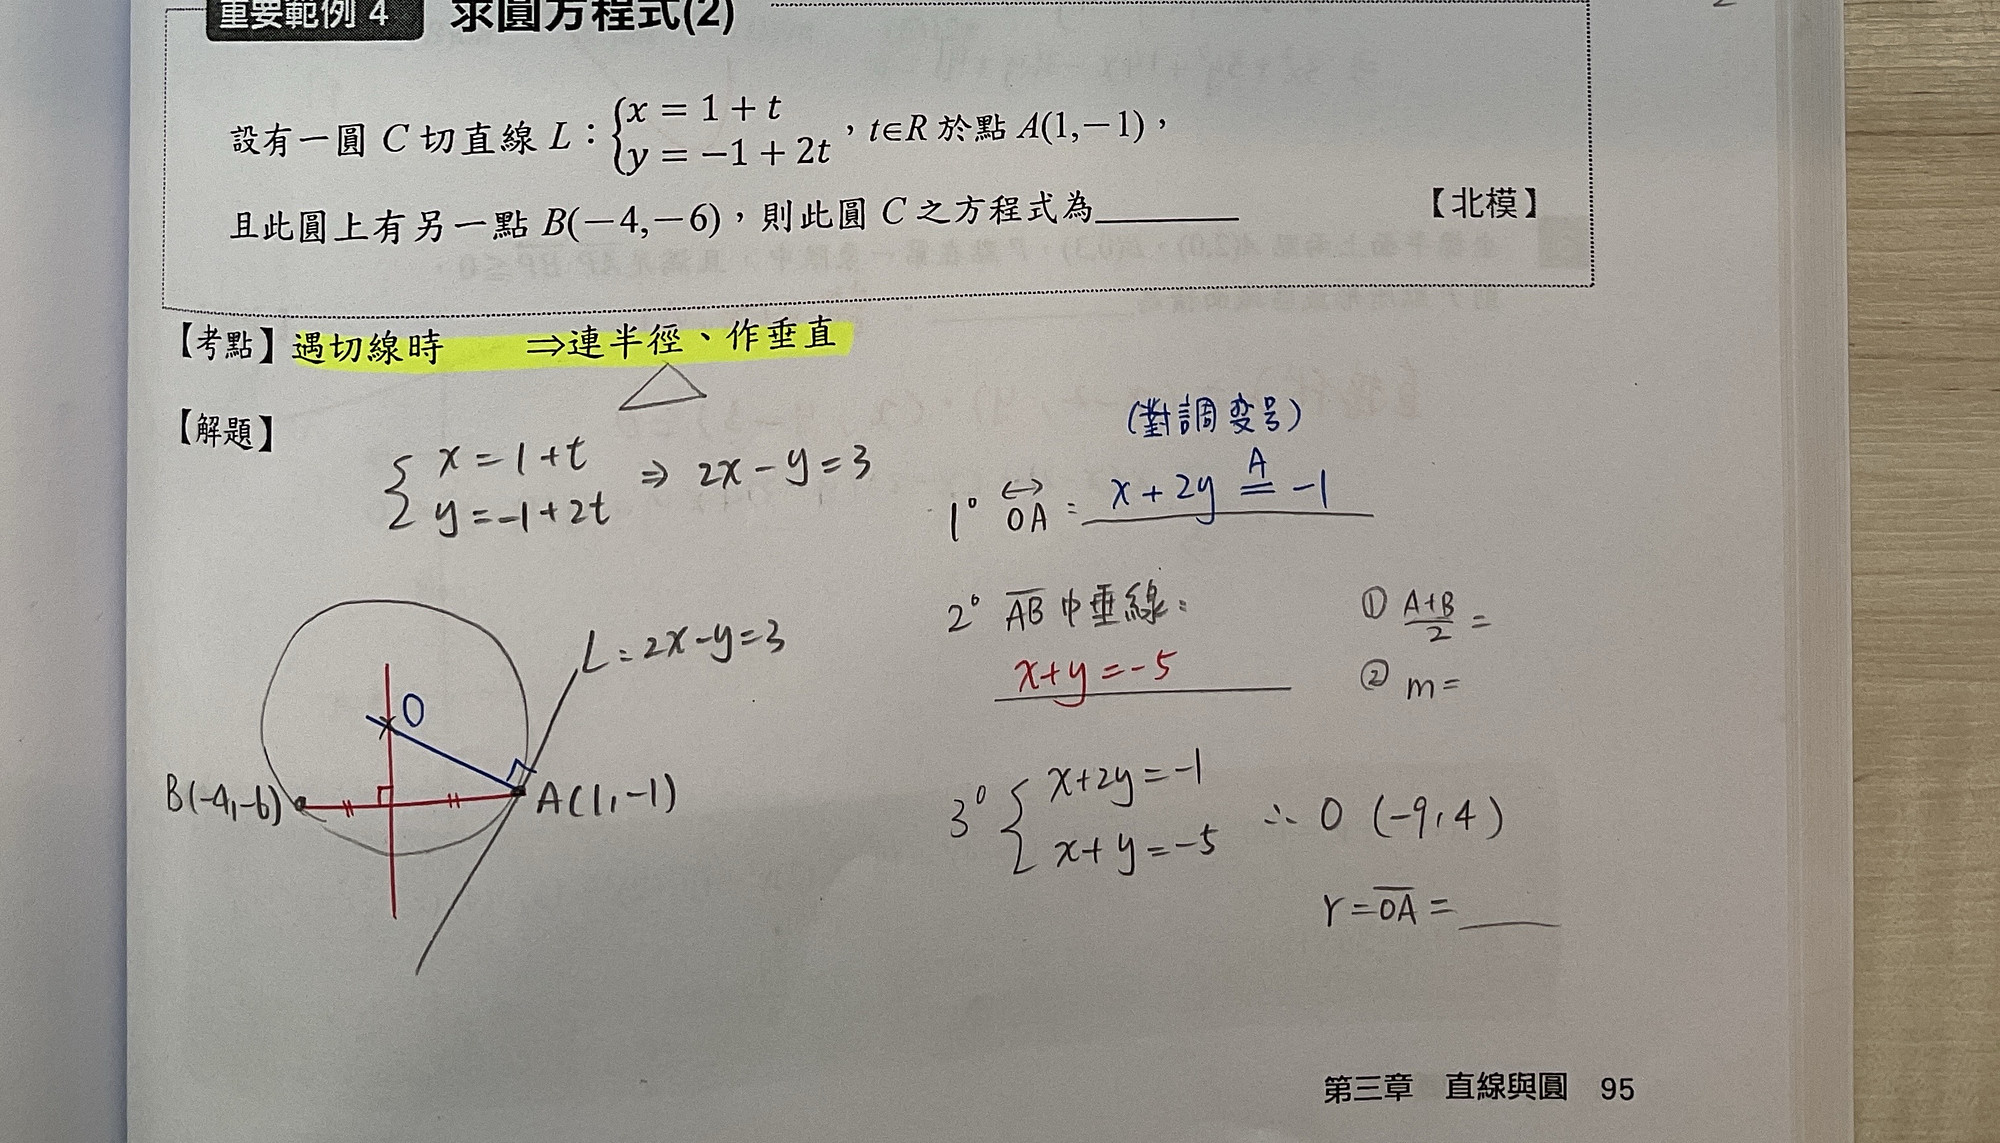 重要範例 4 求圓方程式(2)
設有一圓 C 切直線 L：{x = 1 + t
y = −1 + 2t ，t∈R 於點 A(1,−1)，
且此圓上有另一點 B(−4,−6)，則此圓 C 之方程式為______ 【北模】
【考點】遇切線時 ⇒連半徑、作垂直
【解題】
{x = 1+t
y = -1+2t ⇒ 2x-y=3
(對調变号)
1° OA : x+2y = -1
A
2° AB 中垂線：
x+y=-5
① A+B/2 =
② m=
L: 2x-y=3
O
B(-4,-6)
A(1,-1)
3° {x+2y=-1
x+y=-5
∴ O (-9,4)
r=OA=
第三章 直線與圓 95